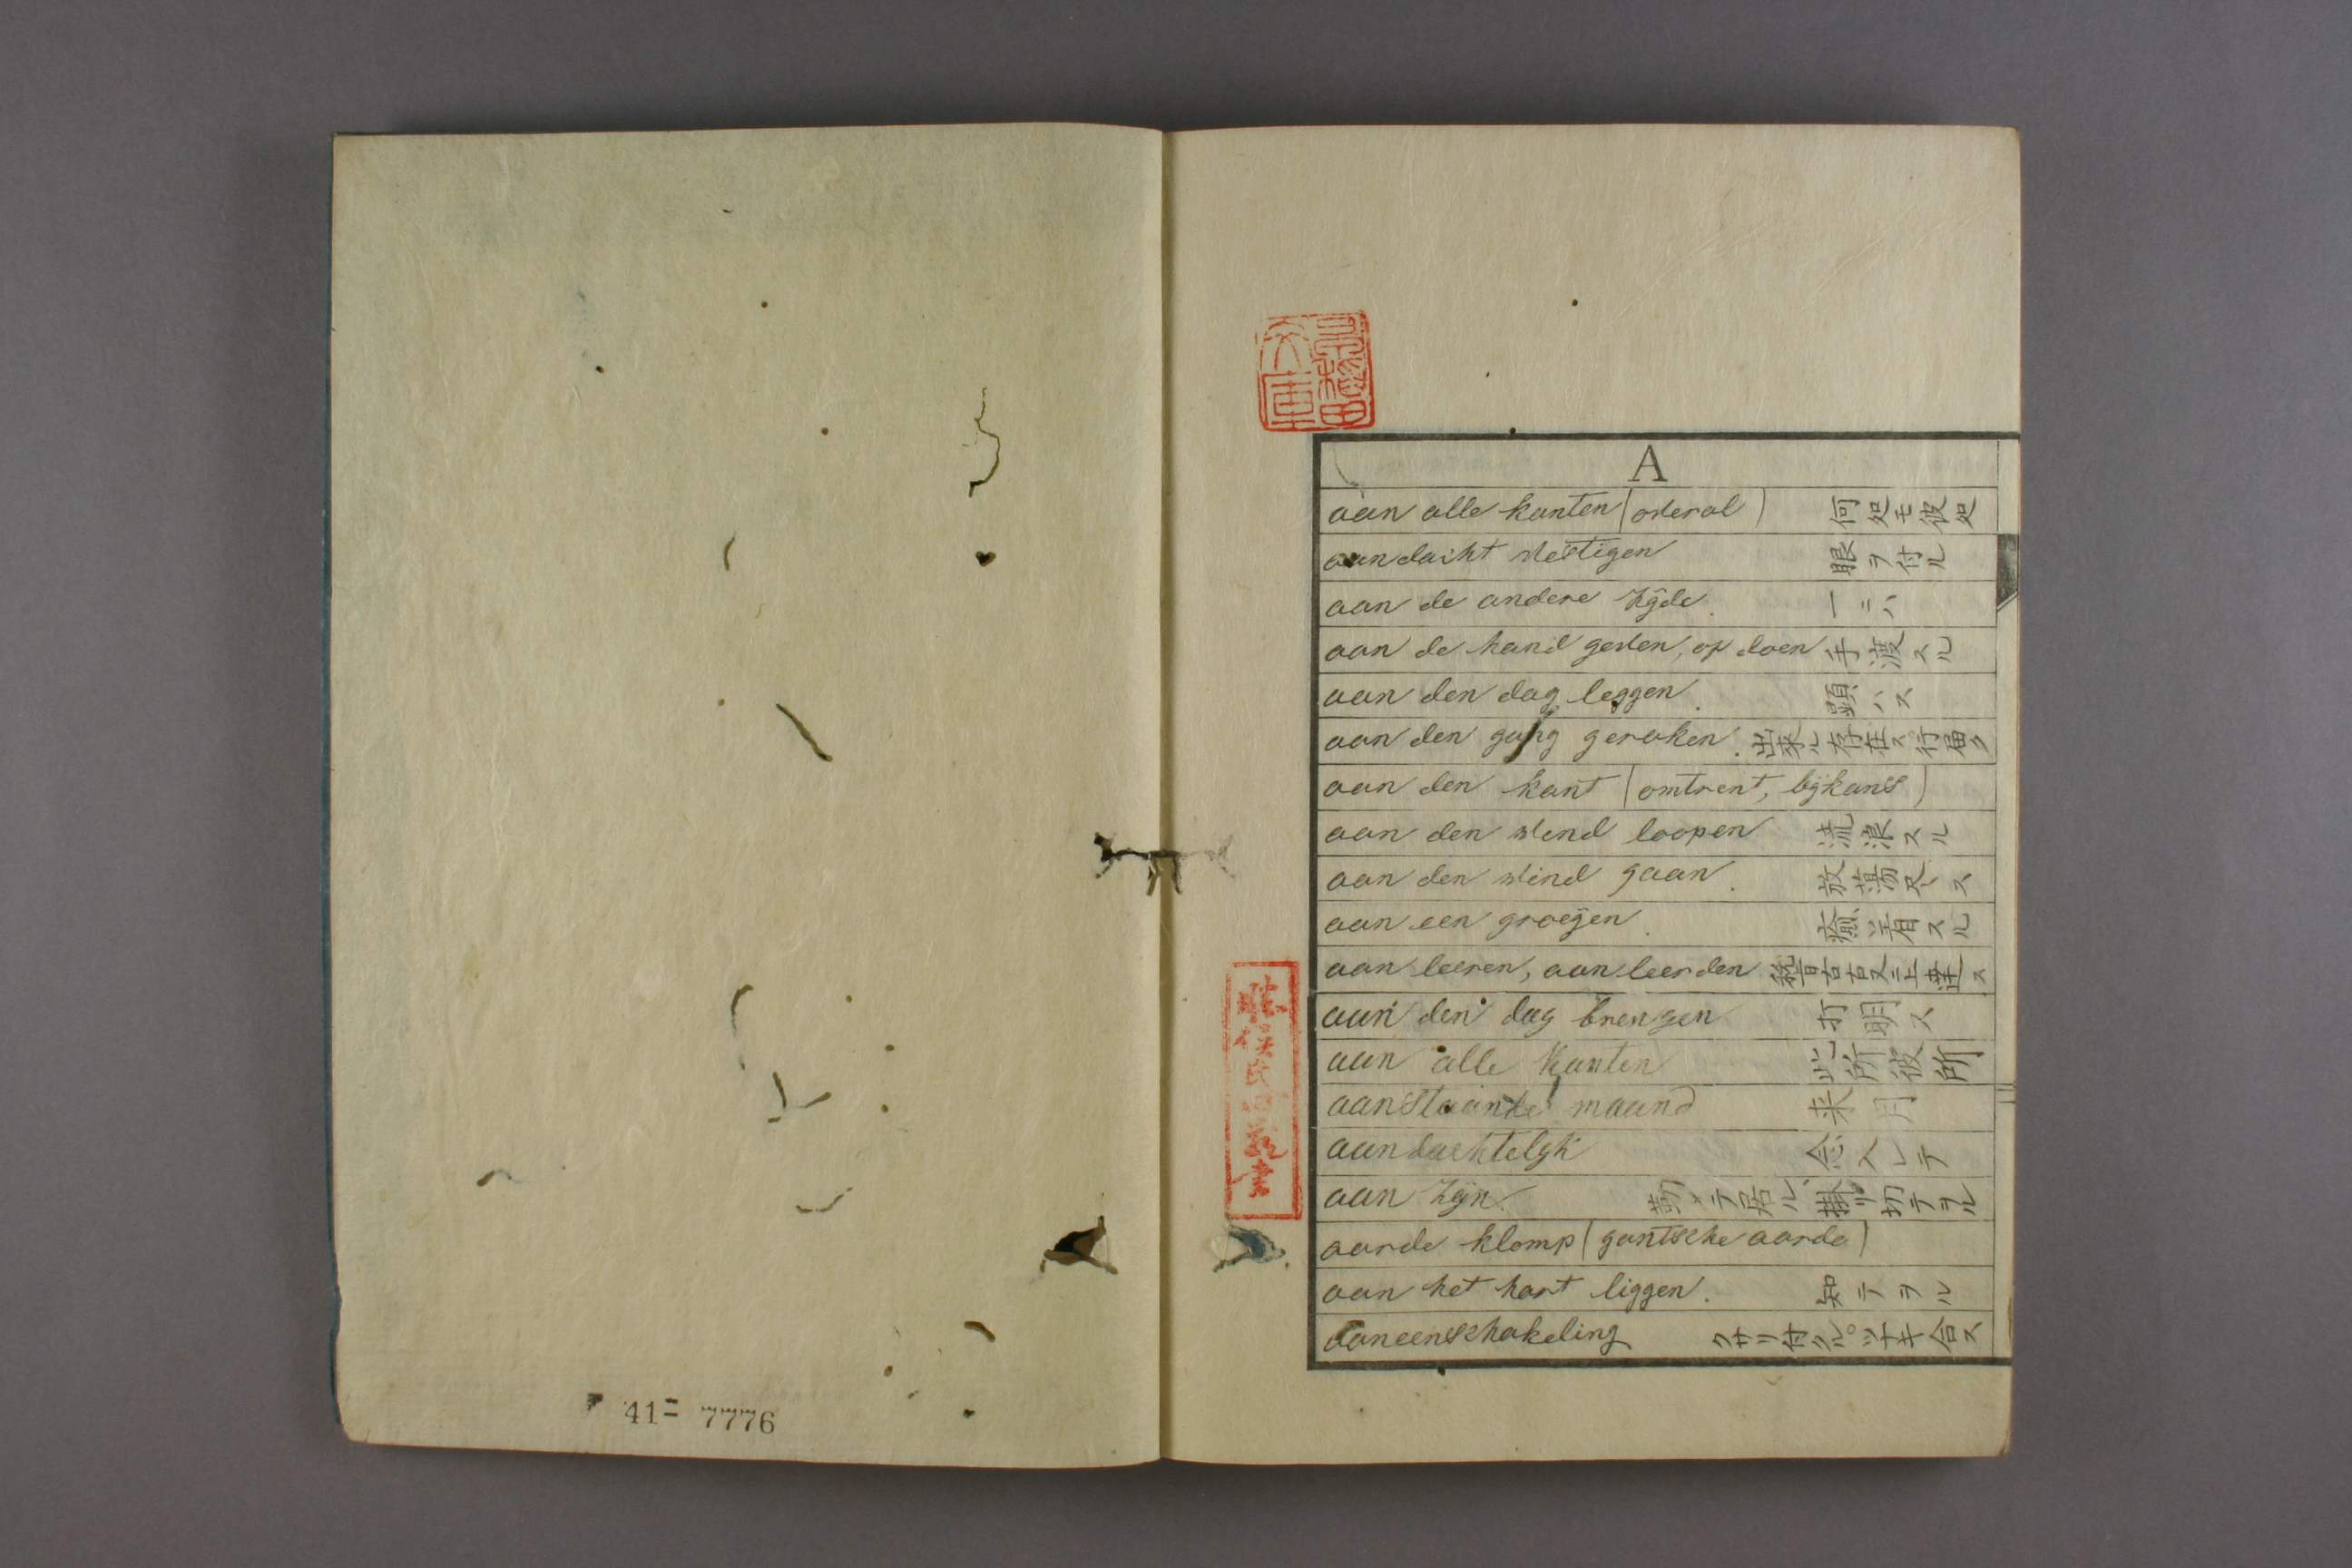 41-7776
A
aan alle kanten (overal) 何処モ彼処
aandacht vestigen 眼ヲ付ル
aan de andere zÿde. 一ニハ
aan de hand geven, op doen 手渡スル
aan den dag leggen. 顕ハス
aan den gang geraken. 出来ル存在ス行届ク
aan den kant (omtrent, bÿkans)
aan den wend loopen 流浪スル
aan den wind gaan. 放蕩尽ス
aan een groeÿen. 癒着スル
aan leeren, aan leerden 稽古
aan den dag brengen 打明ス
aan alle Kanten 此所彼所
aanstaande maand 来月
aandachtelÿk 念入レテ
aan zÿn.
aarde klomp (gantsche aarde)
aan het hart liggen. 知テヲル
aaneenschakeling クサリ付クル。ツナキ合ス